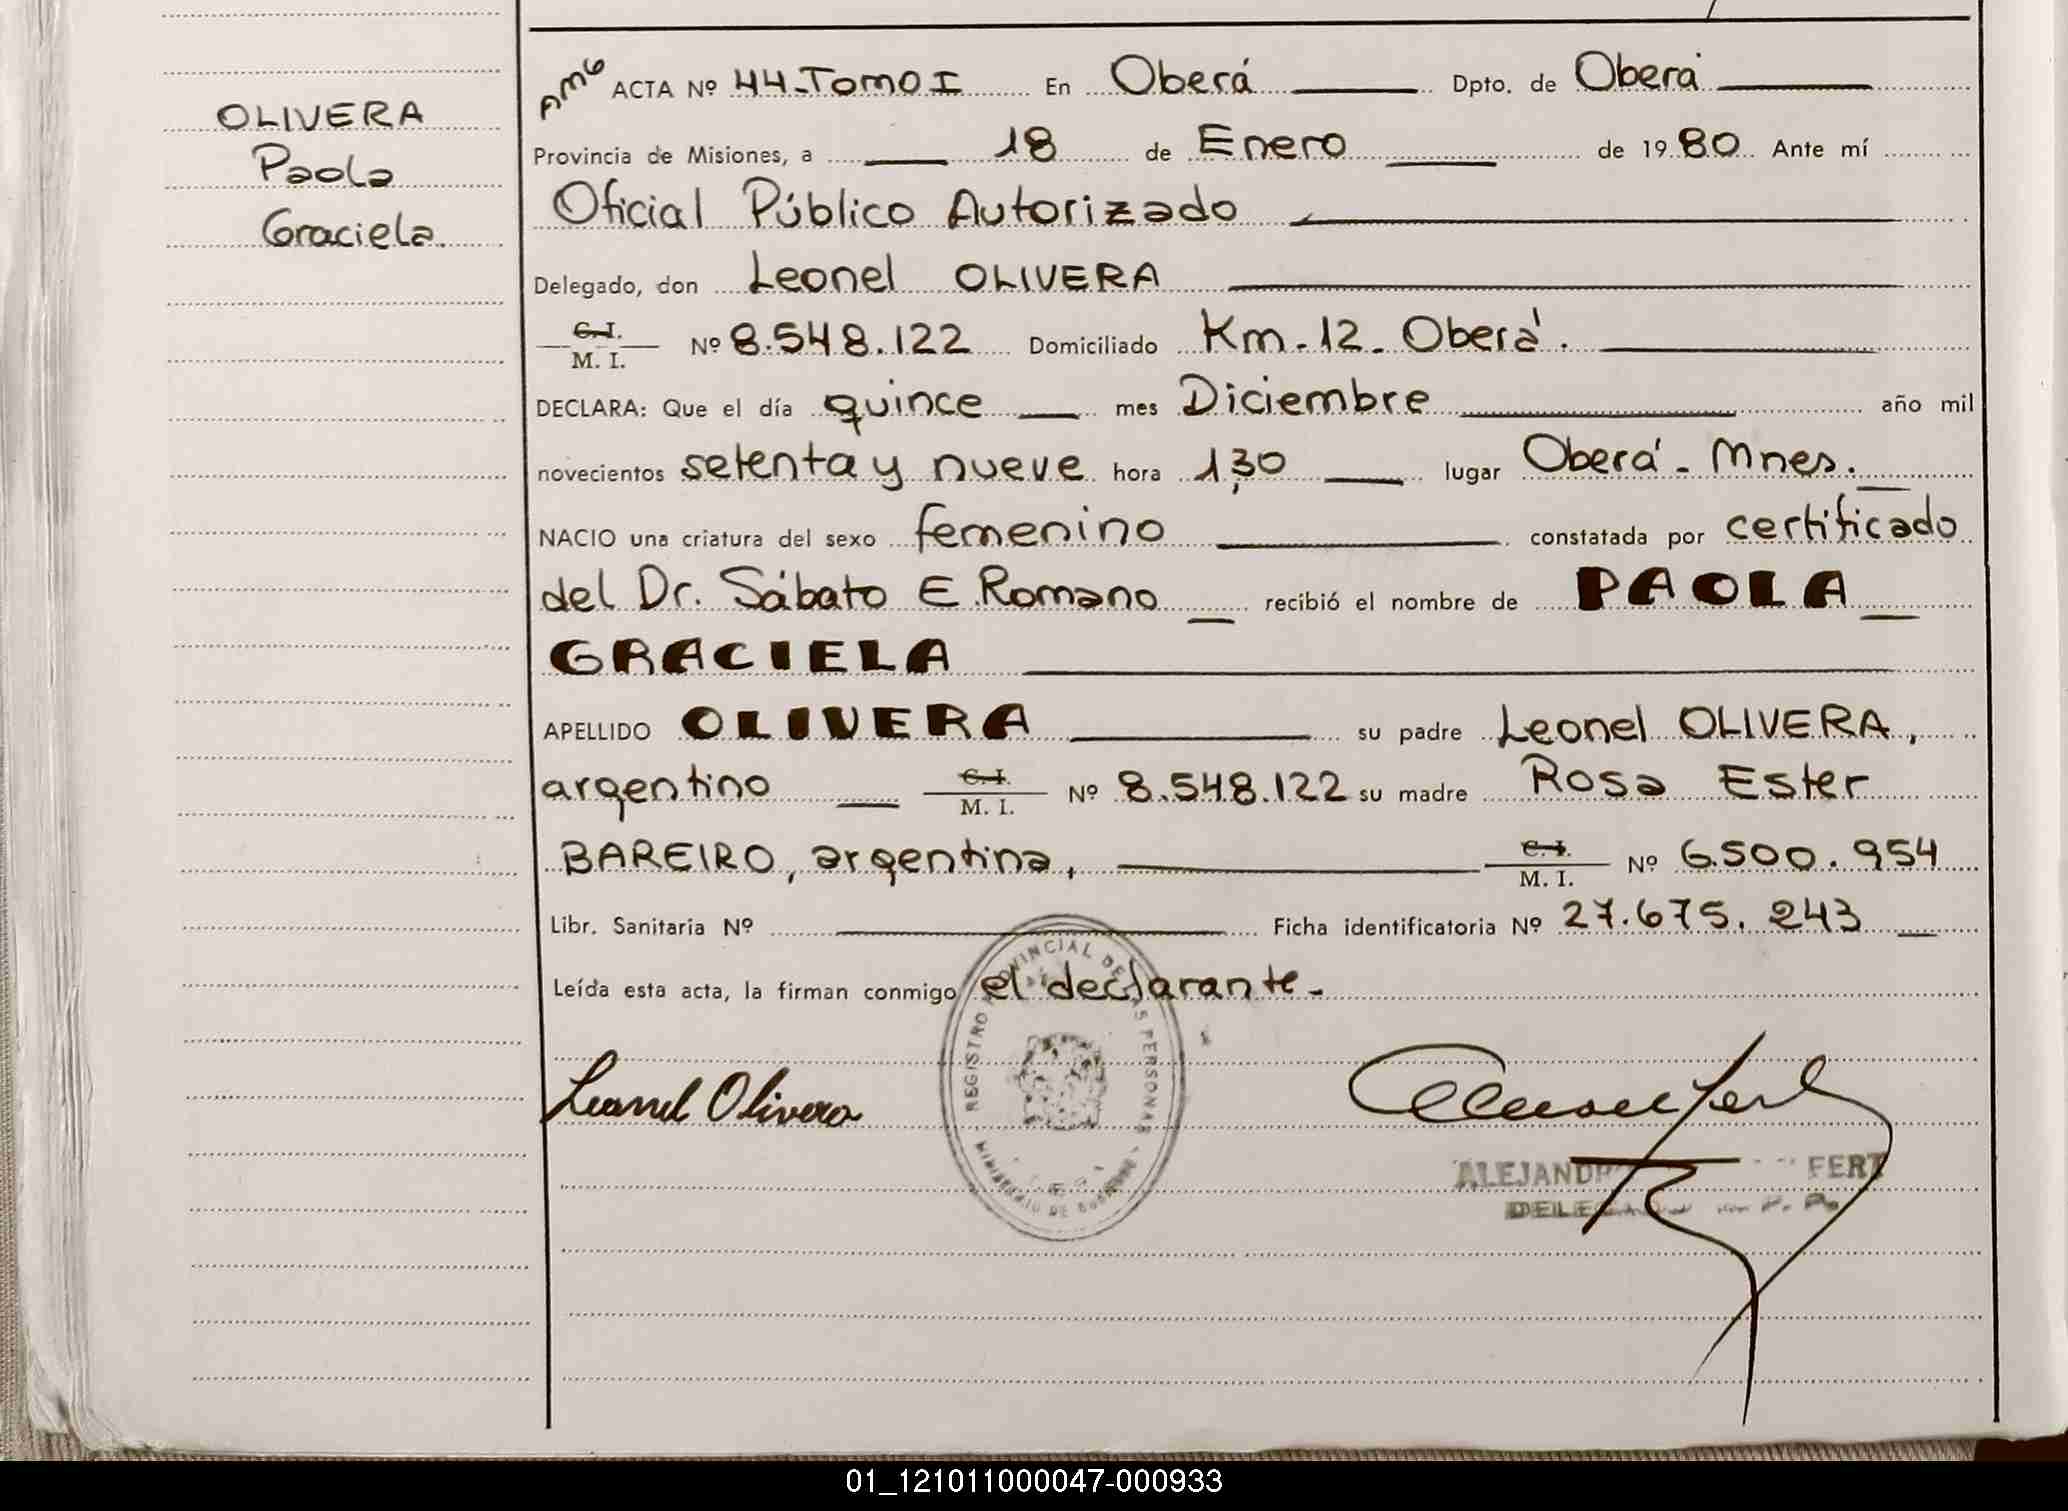 OLIVERA
Paola
Graciela.
AMG ACTA Nº 44-Tomo I En Oberá Dpto. de Oberá
Provincia de Misiones, a 18 de Enero de 1980 Ante mí
Oficial Público Autorizado
Delegado, don Leonel OLIVERA
C.I. / M. I. Nº 8.548.122 Domiciliado Km-12- Oberá.
DECLARA: Que el día quince mes Diciembre año mil
novecientos setenta y nueve hora 1,30 lugar Oberá- Mnes.
NACIO una criatura del sexo femenino constatada por certificado
del Dr. Sábato E. Romano recibió el nombre de PAOLA
GRACIELA
APELLIDO OLIVERA su padre Leonel OLIVERA,
argentino C.I. / M. I. Nº 8.548.122 su madre Rosa Ester
BAREIRO, argentina, C.I. / M. I. Nº 6.500.954
Libr. Sanitaria Nº Ficha identificatoria Nº 27.675.243
Leída esta acta, la firman conmigo el declarante.-
REGISTRO PROVINCIAL DE LAS PERSONAS
MINISTERIO DE GOBIERNO
Leonel Olivera
01_121011000047-000933